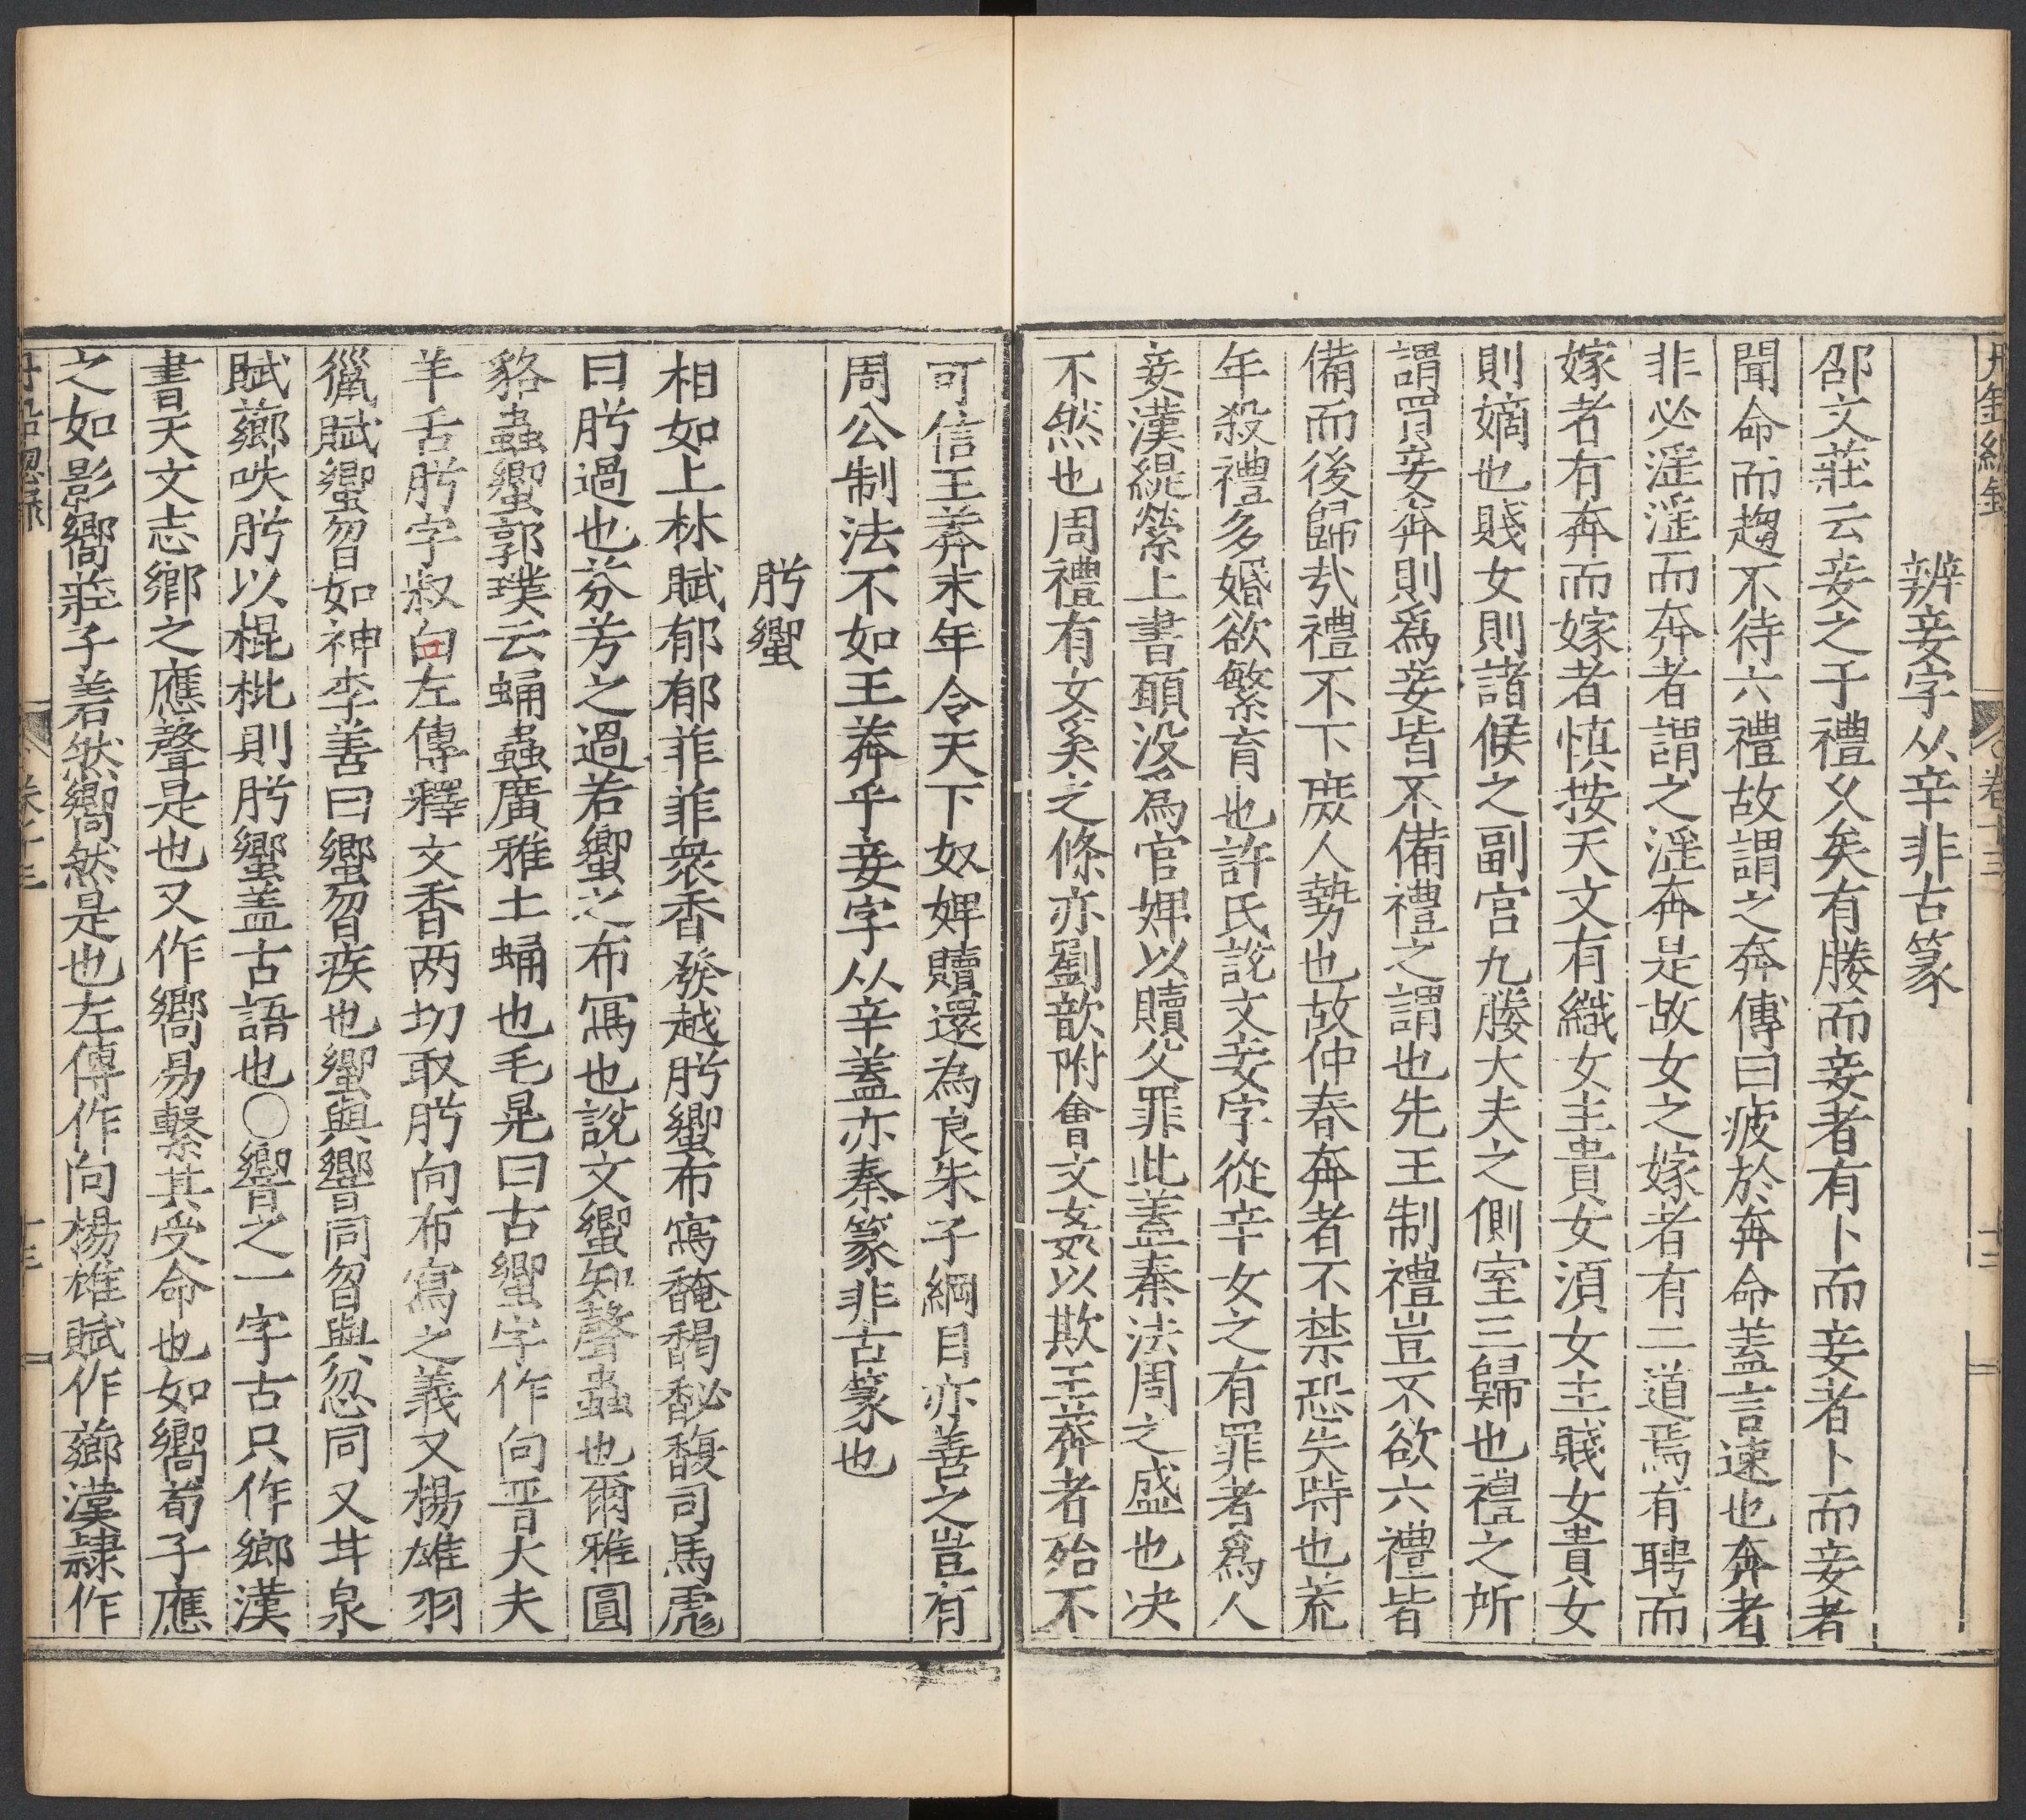 丹鉛總錄 卷十三 十二
辨妾字从辛非古篆
邵文莊云妾之于禮乆矣有媵而妾者有卜而妾者卜而妾者
聞命而趨不待六禮故謂之奔傳曰疲於奔命蓋言速也奔者
非必淫淫而奔者謂之淫奔是故女之嫁者有二道焉有聘而
嫁者有奔而嫁者慎按天文有織女主貴女湏女主賤女貴女
則嫡也賤女則諸侯之副宫九媵大夫之側室三歸也禮之所
謂買妾奔則爲妾皆不備禮之謂也先王制禮豈不欲六禮皆
備而後歸㢤禮不下庶人勢也故仲春奔者不禁恐失時也荒
年殺禮多婚欲繁育也許氏說文妾字從辛女之有罪者爲人
妾漢緹縈上書願没爲官婢以贖父罪此蓋秦法周之盛也决
不然也周禮有女奚之條亦劉歆附會文姦以欺王莽者殆不
可信王莽末年令天下奴婢贖還為良朱子綱目亦善之豈有
周公制法不如王莽乎妾字从辛蓋亦秦篆非古篆也
肸蠁
相如上林賦郁郁菲菲衆香發越肸蠁布寫馣馤馝馥司馬彪
曰肸過也芬芳之過若蠁之布寫也說文蠁知聲蟲也爾雅圓
貉蟲蠁郭璞云蛹蟲廣雅土蛹也毛晃曰古蠁字作向晋大夫
羊舌肸字叔向左傳釋文香两切取肸向布寫之義又楊雄羽
獵賦蠁曶如神李善曰蠁曶疾也蠁與響同曶與忽同又甘泉
賦薌呹肸以棍枇則肸蠁盖古語也〇響之一字古只作鄉漢
書天文志鄉之應聲是也又作嚮易繫其受命也如嚮荀子應
之如影嚮莊子砉然嚮然是也左傳作向楊雄賦作薌漢隷作
丹鉛總録 卷十三 十三